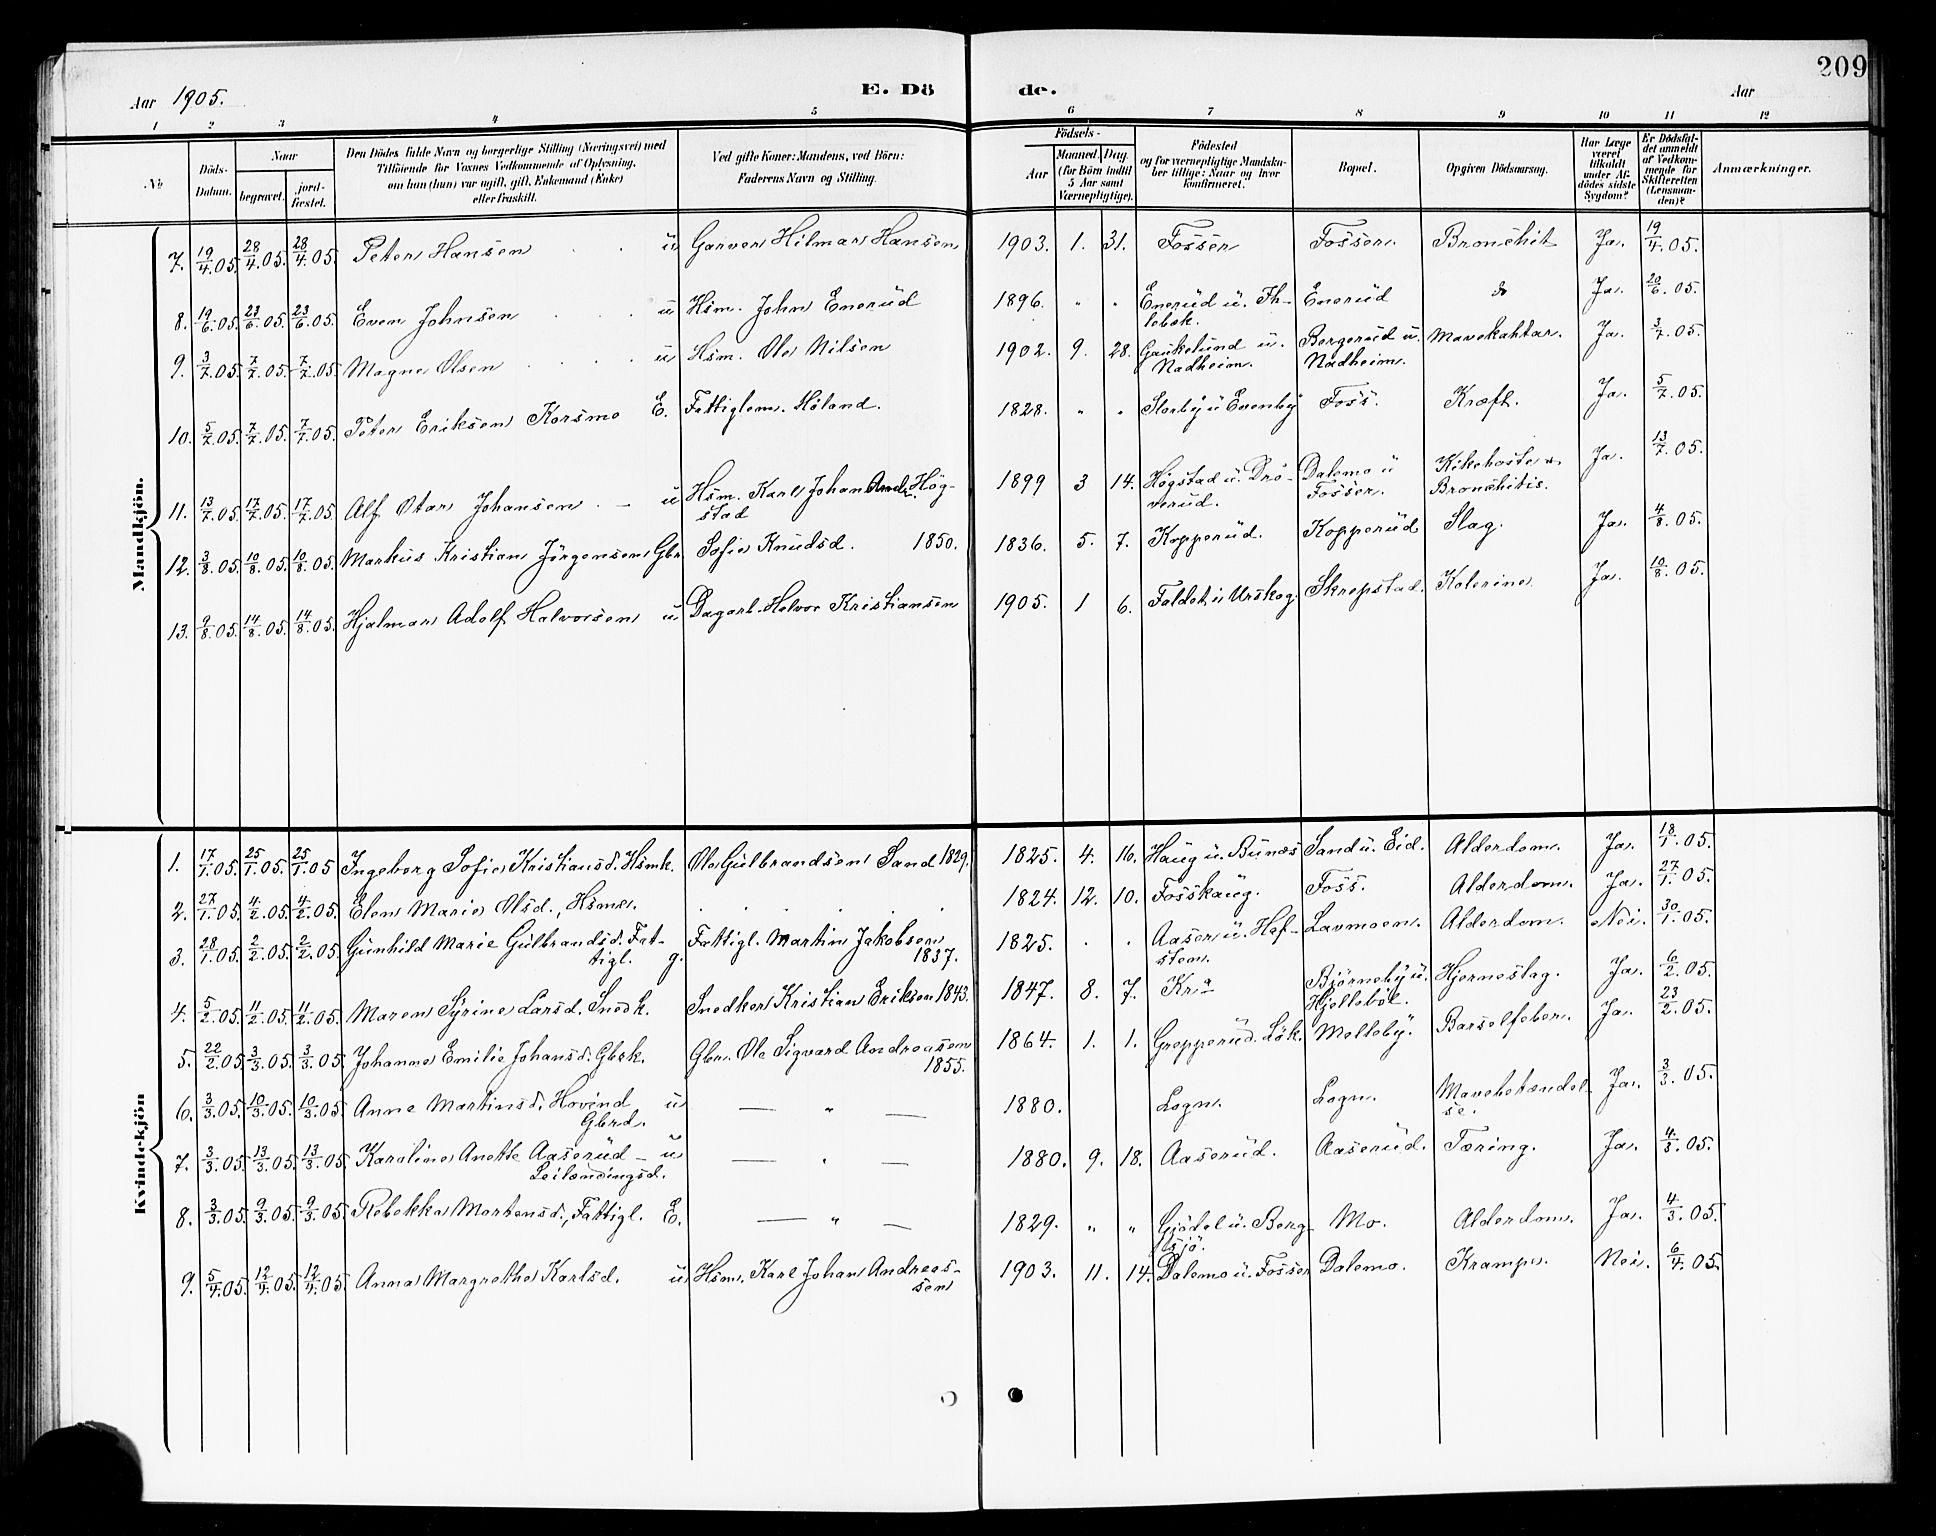 209
Aar 1905. E. Dö de. Aar
1 2 3 4 5 6 7 8 9 10 11 12
No
Döds-Datum.
Naar
begravet.
jord-fæstet.
Den Dödes fulde Navn og borgerlige Stilling (Næringsvei) med
Tilföiende for Voxnes Vedkommende af Oplysning,
om han (hun) var ugift, gift, Enkemand (Enke)
eller fraskilt.
Ved gifte Koner: Mandens, ved Börn:
Faderens Navn og Stilling.
Födsels-
Aar
Maaned. Dag.
(for Börn indtil
5 Aar samt
Værnepligtige).
Födested
og for værnepligtige Mandska-
ber tillige: Naar og hvor
konfirmeret.
Bopæl.
Opgiven Dödsaarsag.
Har Læge
været
tilkaldt
under Af-
dödes sidste
Sygdom?
Er Dödsfal-
det anmeldt
af Vedkom-
mende for
Skifteretten
(Lensman-
den)?
Anmærkninger.
Mandkjön.
7. 19/4.05. 28/4.05. 28/4.05. Peter Hansen u Garver Hilmar Hansen 1903. 1. 31. Fosser Fosser. Bronchit Ja. 19/4.05.
8. 19/6.05. 23/6.05. 23/6.05. Even Johnsen u Hsm. John Enerud 1896. " " Enerud u. Th- Enerud do Ja. 20/6.05.
lebek.
9. 3/7.05. 7/7.05. 7/7.05. Magne Olsen u Hsm. Ole Nilsen 1902. 9. 28. Gaukelund u. Bergerud u. Mavekahtar. Ja. 3/7.05.
Nadheim. Nadheim.
10. 5/7.05. 7/7.05. 7/7.05. Peter Eriksen Korsmo E. Fattiglem. Höland. 1828. " " Storby u Evenby Foss. Kræft. Ja. 5/7.05.
11. 13/7.05. 17/7.05. 17/7.05. Alf Otar Johansen u Hsm. Karl Johan Andr. Hög- 1899 3 14. Högstad u. Drö- Dalemo u Kikhoste o. Ja. 13/7.05.
stad verud. Fosser. Bronchitis.
12. 3/8.05. 10/8.05. 10/8.05. Markus Kristian Jörgensen Gbr. Sofie Knudsd. 1850. 1836. 5. 7. Kopperud. Kopperud Slag. Ja. 4/8.05.
13. 9/8.05. 14/8.05. 14/8.05. Hjalmar Adolf Halvorsen u Dagarb. Halvor Kristiansen 1905. 1 6. Faldet i Urskog. Skrepstad. Kolerine. Ja. 10/8.05.
Kvindekjön
1. 17/1.05. 25/1.05. 25/1.05 Ingeborg Sofie Kristiansd. Hsmk. Ole Gulbrandsen Sand 1829. 1825. 4. 16. Haug u. Bunæs Sand u. Eid. Alderdom. Ja. 18/1.05.
2. 27/1.05. 4/2.05. 4/2.05. Elen Marie Olsd., Hsme. 1824. 12. 10. Fosshaug. Foss. Alderdom. Ja. 27/1.05.
3. 28/1.05. 2/2.05. 2/2.05. Gunhild Marie Gulbrandsd. Fat- Fattigl. Martin Jakobsen 1825. Aaser u. Hof- Lavmoen. Alderdom. Nei. 30/1.05.
tigl. g. 1837. sten.
4. 5/2.05. 11/2.05. 11/2.05. Maren Syrine Larsd. Snedk. Snedker Kristian Eriksen 1843. 1847. 8. 7. Kra Björneby u. Hjerneslag. Ja. 6/2.05.
Hjelleböl.
5. 22/2.05. 3/3.05. 3/3.05. Johanne Emilie Johansd. Gbrk. Gbr. Ole Sigvard Andreassen 1864. 1. 1. Grepperud. Lök. Melleby. Barselfeber. Ja. 23/2.05.
1855.
6. 3/3.05. 10/3.05. 10/3.05. Anne Martinsd. Hovind u — " — 1880. Logn. Logn. Mavebetændel- Ja. 3/3.05.
Gbrd. se.
7. 3/3.05. 13/3.05. 13/3.05. Karoline Anette Aaserud — u — " — 1880. 9. 18. Aaserud. Aaserud. Tæring. Ja. 4/3.05.
Leilændingsd.
8. 3/3.05. 9/3.05. 9/3.05. Rebekka Mortensd., Fattigl. E. — " — 1829. " " Gjödel u. Berg- Mo. Alderdom. Ja. 4/3.05.
sjö.
9. 5/4.05. 12/4.05. 12/4.05. Anna Margrethe Karlsd. u Hsm. Karl Johan Andreas- 1903. 11. 14. Dalemo u. Fosser Dalemo. Krampe. Nei. 6/4.05.
sen